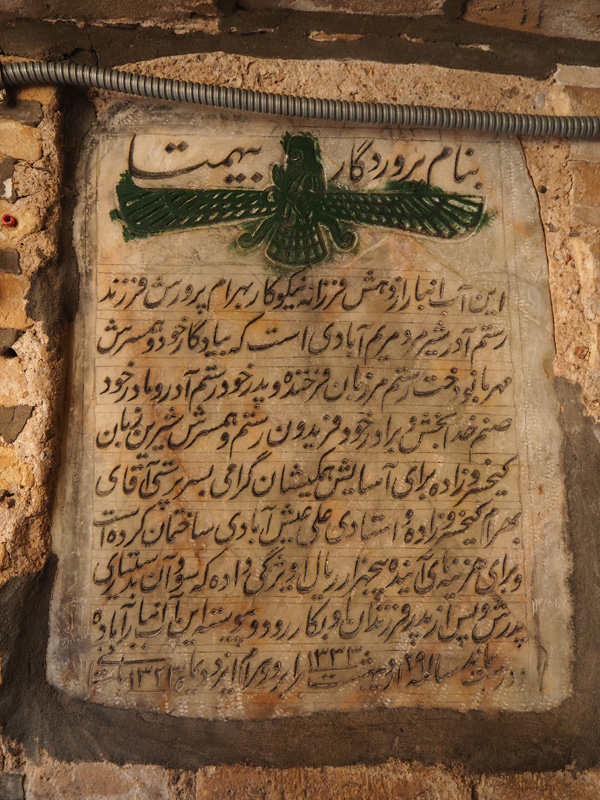 بنام پروردگار بیهمتا
این آب انبار از دهش فرزانه نیکوکار بهرام پرورش فرزند
رستم آدر شیرمرد مریم آبادی است که بیادگار خود و همسرش
مهربانو دخت رستم مرزبان فرخنده و پدر خود رستم آدر و مادر خود
صنم خدابخش و برادر خود فریدون رستم و همسرش شیرین نریمان
کیخسرو فرزاده برای آسایش همکیشان گرامی بسرپرستی آقای
بهرام کیخسرو فرزاده و استادی علی عیش آبادی ساختمان کرده است
و برای هزینه های آینده پنجهزار ریال ویژگی داده که سود آن بدستیاری
پدرش و پس از پدر فرزندان او بکار رود و پیوسته این آب انبار آباده
و درست بماند ۲۹ اردیبهشت ۱۳۳۳ برابر روز ورهرام ایزد ۱۳۲۳